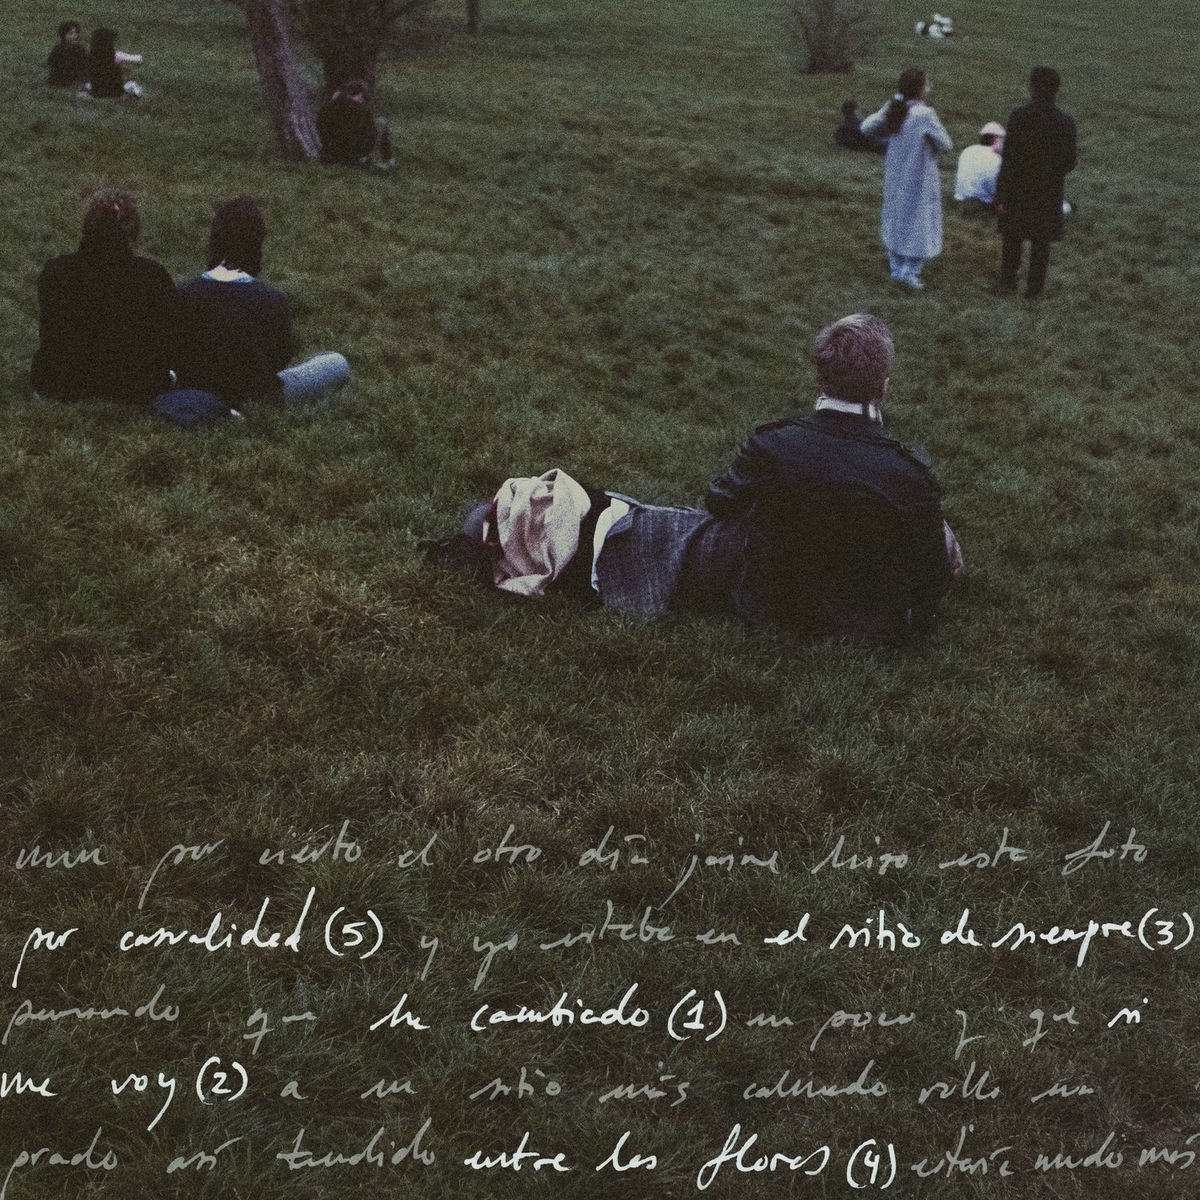 por cierto el otro día jaime hizo esta foto
por casualidad (5) y yo estaba en el sitio de siempre (3)
pensando que he cambiado (1) un poco y que si
me voy (2) a un sitio más calmado rollo un
prado así tendido entre las flores (4) estaría mucho más